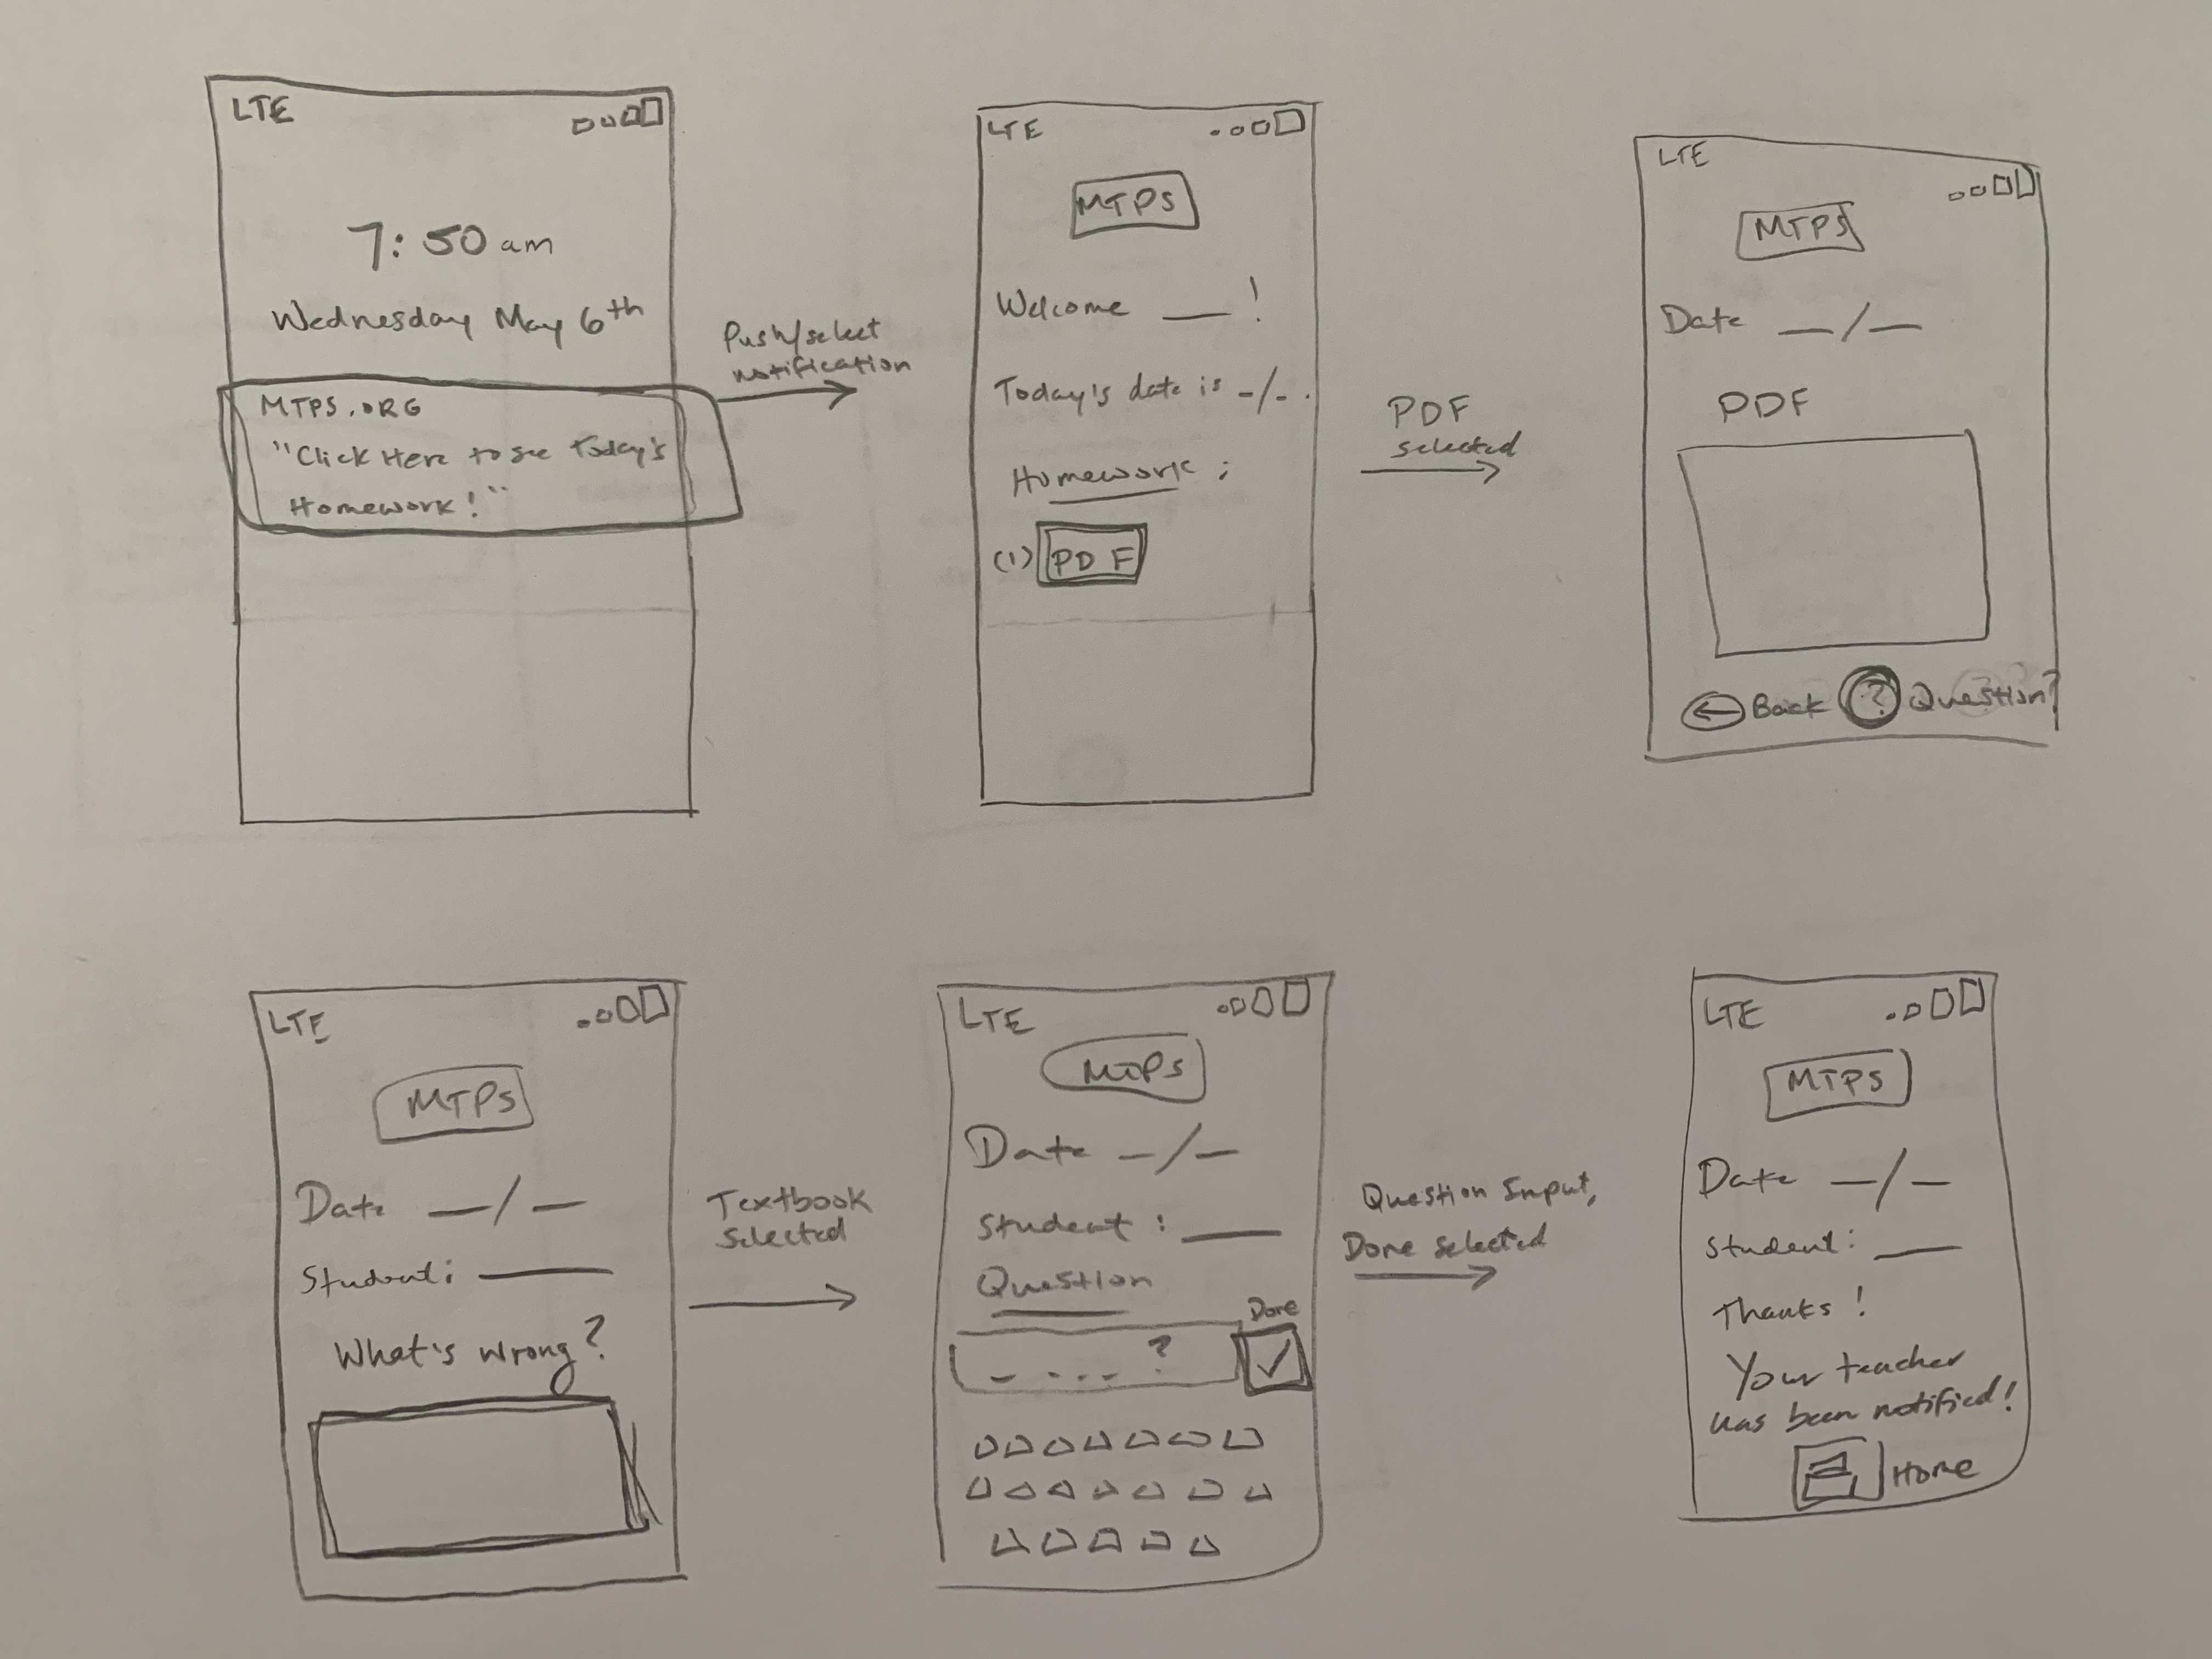 LTE
7:50 am
Wednesday May 6th
MTPS.ORG
"Click Here to see Today's
Homework!"
Push/select
notification
LTE
MTPS
Welcome ___ !
Today's date is -/-.
Homework:
(1) PDF
PDF
selected
LTE
MTPS
Date _/_
PDF
Back ? Question?
LTE
MTPS
Date _/_
Student: ____
What's wrong?
Textbook
selected
LTE
MTPS
Date _/_
Student: ____
Question
Done
_ ... ?
Question Input,
Done selected
LTE
MTPS
Date _/_
Student: ___
Thanks!
Your teacher
has been notified!
Home